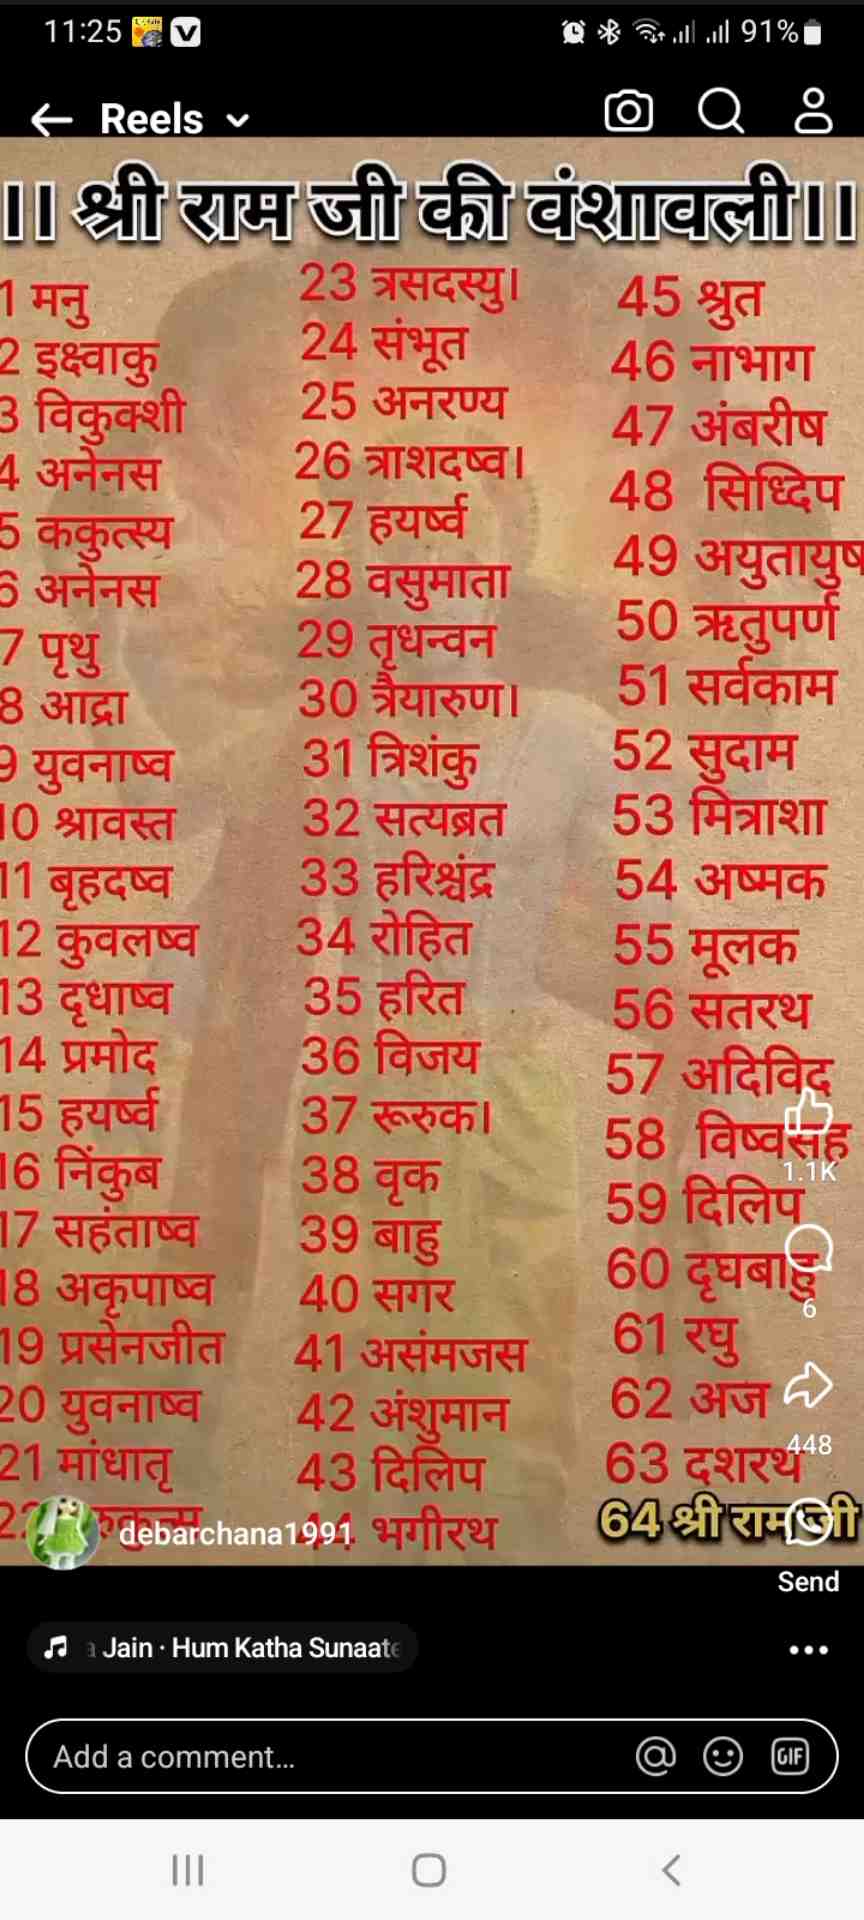 11:25
91%
Reels
|| श्री राम जी की वंशावली ||
1 मनु
2 इक्ष्वाकु
3 विकुक्शी
4 अनेनस
5 ककुत्स्य
6 अनेनस
7 पृथु
8 आद्रा
9 युवनाष्व
10 श्रावस्त
11 बृहदष्व
12 कुवलष्व
13 दृधाष्व
14 प्रमोद
15 हयर्ष्व
16 निंकुब
17 सहंताष्व
18 अकृपाष्व
19 प्रसेनजीत
20 युवनाष्व
21 मांधातृ
23 त्रसदस्यु।
24 संभूत
25 अनरण्य
26 त्राशदष्व।
27 हयर्ष्व
28 वसुमाता
29 तृधन्वन
30 त्रैयारुण।
31 त्रिशंकु
32 सत्यब्रत
33 हरिश्चंद्र
34 रोहित
35 हरित
36 विजय
37 रूरुक।
38 वृक
39 बाहु
40 सगर
41 असंमजस
42 अंशुमान
43 दिलिप
44 भगीरथ
45 श्रुत
46 नाभाग
47 अंबरीष
48 सिध्दिप
49 अयुतायुष
50 ऋतुपर्ण
51 सर्वकाम
52 सुदाम
53 मित्राशा
54 अष्मक
55 मूलक
56 सतरथ
57 अदिविद
58 विष्वसह
59 दिलिप
60 दृघबाहु
61 रघु
62 अज
63 दशरथ
64 श्री राम जी
1.1K
6
448
Send
debarchana1991
Jain · Hum Katha Sunaate
Add a comment...
GIF